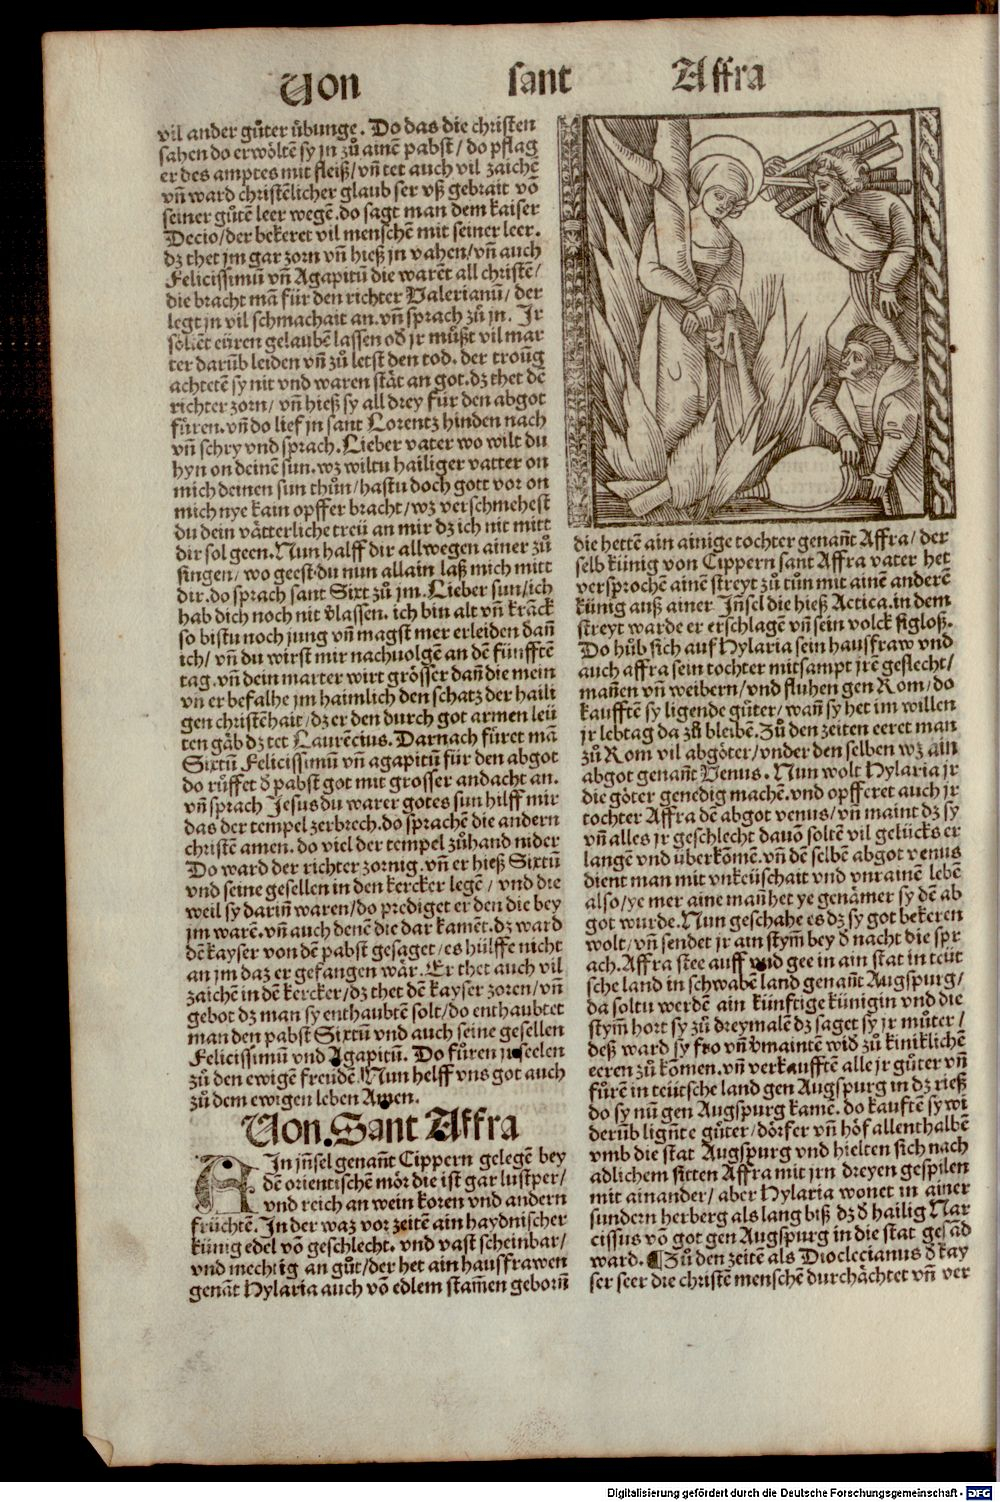 Von sant Affra
vil ander gůter übunge. Do das die christen
sahen do erwöltẽ sy jn zů ainẽ pabst/ do pflag
er des amptes mit fleiß/ vñ tet auch vil zaichẽ
vñ ward christẽlicher glaub ser vß gebrait võ
seiner gůtẽ leer wegẽ. do sagt man dem kaiser
Decio/ der bekeret vil menschẽ mit seiner leer.
dz thet jm gar zorn vñ hieß jn vahen/ vñ auch
Felicissimũ vñ Agapitũ die warẽt all christẽ/
die bracht mã für den richter Valerianũ/ der
legt jn vil schmachait an. vñ sprach zů jn. Jr
söllẽt eüren gelaubẽ lassen oď jr müßt vil mar
ter darũb leiden vñ zů letst den tod. der troũg
achtetẽ sy nit vnd waren stät an got. dz thet dẽ
richter zorn/ vñ hieß sy all drey für den abgot
füren. vñ do lief jn sant Lorentz hinden nach
vñ schry vnd sprach. Lieber vater wo wilt du
hyn on deinẽ sun. wz wiltu hailiger vatter on
mich deinen sun thůn/ hastu doch gott vor on
mich nye kain opffer bracht/ wz verschmehest
du dein vätterliche treü an mir dz ich nit mitt
dir sol geen. Nun halff dir allwegen ainer zů
singen/ wo geest du nun allain laß mich mitt
dir. do sprach sant Sixt zů jm. Lieber sun/ ich
hab dich noch nit v̉lassen. ich bin alt vñ krãck
so bistu noch jung vñ magst mer erleiden dañ
ich/ vñ du wirst mir nachuolgẽ an dẽ fünfftẽ
tag. vñ dein marter wirt grösser dañ die mein
vñ er befalhe jm haimlich den schatz der haili
gen christẽhait/ dz er den durch got armen leü
ten gäb dz tet Laurẽcius. Darnach füret mã
Sixtũ Felicissimũ vñ agapitũ für den abgot
do rüffet ď pabst got mit grosser andacht an.
vñ sprach Jesus du warer gotes sun hilff mir
das der tempel zerbrech. do sprachẽ die andern
christẽ amen. do viel der tempel zůhand nider
Do ward der richter zornig. vñ er hieß Sixtũ
vnd seine gesellen in den kercker legẽ/ vnd die
weil sy dariñ waren/ do prediget er den die bey
jm warẽ. vñ auch denẽ die dar kamẽt. dz ward
dẽ kayser von dẽ pabst gesaget/ es hülffe nicht
an jm daz er gefangen wär. Er thet auch vil
zaichẽ in dẽ kercker/ dz thet dẽ kayser zoren/ vñ
gebot dz man sy enthaubtẽ solt/ do enthaubtet
man den pabst Sixtũ vnd auch seine gesellen
Felicissimũ vnd Agapitũ. Do fůren jr seelen
zů den ewigẽ freüdẽ. Nun helff vns got auch
zů dem ewigen leben Amen.
Von. Sant Affra
AIn jñsel genañt Cippern gelegẽ bey
dẽ orientischẽ mör die ist gar lustper/
vnd reich an wein koren vnd andern
früchtẽ. In der waz vor zeitẽ ain haydnischer
künig edel võ geschlecht. vnd vast scheinbar/
vnd mechtig an gůt/ der het ain hausfrawen
genãt Hylaria auch võ edlem stam̃en geborñ
die hettẽ ain ainige tochter genañt Affra/ der
selb künig von Cippern sant Affra vater het
versprochẽ ainẽ streyt zů tůn mit ainẽ anderẽ
künig auß ainer Jñsel die hieß Actica. in dem
streyt warde er erschlagẽ vñ sein volck sigloß.
Do hůb sich auf Hylaria sein hausfraw vnd
auch affra sein tochter mitsampt jrẽ geslecht/
mañen vñ weibern/ vnd fluhen gen Rom/ do
kaufftẽ sy ligende gůter/ wañ sy het im willen
jr lebtag da zů bleibẽ. Zů den zeiten eeret man
zů Rom vil abgöter/ vnder den selben wz ain
abgot genañt Venus. Nun wolt Hylaria jr
die göter genedig machẽ. vnd opfferet auch jr
tochter Affra dẽ abgot venus/ vñ maint dz sy
vñ alles jr geschlecht dauõ soltẽ vil gelücks er
langẽ vnd überkõmẽ. vñ dẽ selbẽ abgot venus
dient man mit vnkeüschait vnd vnrainẽ lebẽ
also/ ye mer aine mañ het ye genämer sy dẽ ab
got wurde. Nun geschahe es dz sy got bekeren
wolt/ vñ sendet jr ain stym̃ bey ď nacht die spr
ach. Affra stee auff vnd gee in ain stat in teüt
sche land in schwabẽ land genañt Augspurg/
da soltu werdẽ ain künftige künigin vnd die
stym̃ hort sy zů dreymalẽ dz saget sy jr můter/
deß ward sy fro vñ v̉maintẽ wid zů küniklichẽ
eeren zů komen. vñ verkaufftẽ alle jr gůter vñ
fůrẽ in teütsche land gen Augspurg in dz rieß
do sy nũ gen Augspurg kamẽ. do kauftẽ sy wi
derũb ligñte gůter/ dörfer vñ höf allenthalbẽ
vmb die stat Augspurg vnd hielten sich nach
adlichem sitten Affra mit jrn dreyen gespilen
mit ainander/ aber Hylaria wonet in ainer
sundern herberg als lang biß dz ď hailig Nar
cissus võ got gen Augspurg in die stat gesãd
ward. ¶ Zů den zeitẽ als Dioclecianus ď kay
ser seer die christẽ menschẽ durchächtet vñ ver
Digitalisierung gefördert durch die Deutsche Forschungsgemeinschaft - DFG